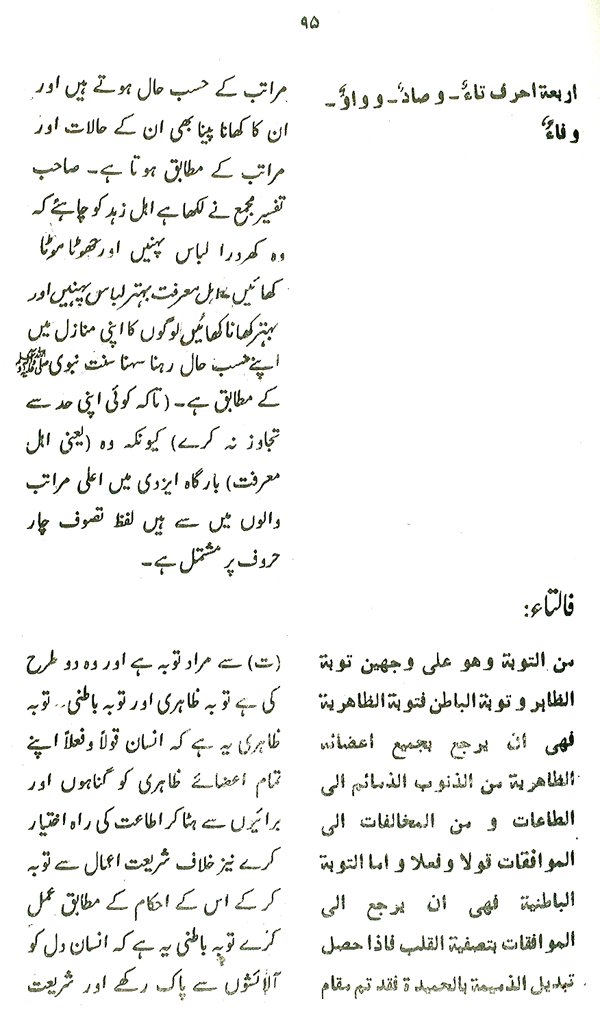 ۹۵
اربعة احرف تاءٌ ۔ و صادٌ ۔ و واؤٌ ۔
و فاءٌ
مراتب کے حسب حال ہوتے ہیں اور
ان کا کھانا پینا بھی ان کے حالات اور
مراتب کے مطابق ہوتا ہے۔ صاحب
تفسیر مجمع نے لکھا ہے اہل زہد کو چاہئے کہ
وہ کھردرا لباس پہنیں اور جھوٹا موٹا
کھائیں۔ اہل معرفت بہتر لباس پہنیں اور
بہتر کھانا کھائیں لوگوں کا اپنی منازل میں
اپنے حسب حال رہنا سہنا سنت نبوی ﷺ
کے مطابق ہے۔ (تاکہ کوئی اپنی حد سے
تجاوز نہ کرے) کیونکہ وہ (یعنی اہل
معرفت) بارگاہ ایزدی میں اعلی مراتب
والوں میں سے ہیں لفظ تصوف چار
حروف پر مشتمل ہے۔
فالتاء:
من التوبة وهو على وجهين توبة
الظاہر و توبة الباطن فتوبة الظاهرية
فهى ان يرجع بجميع اعضائه
الظاهرية من الذنوب الذمائم الى
الطاعات و من المخالفات الى
الموافقات قولا وفعلا و اما التوبة
الباطنية فهى ان يرجع الى
الموافقات بتصفية القلب فاذا حصل
تبديل الذميمة بالحميدة فقد تم مقام
(ت) سے مراد توبہ ہے اور وہ دو طرح
کی ہے توبہ ظاہری اور توبہ باطنی۔۔ توبہ
ظاہری یہ ہے کہ انسان قولاً وفعلاً اپنے
تمام اعضائے ظاہری کو گناہوں اور
برائیوں سے ہٹا کر اطاعت کی راہ اختیار
کرے نیز خلاف شریعت اعمال سے توبہ
کر کے اس کے احکام کے مطابق عمل
کرے توبہ باطنی یہ ہے کہ انسان دل کو
آلائشوں سے پاک رکھے اور شریعت